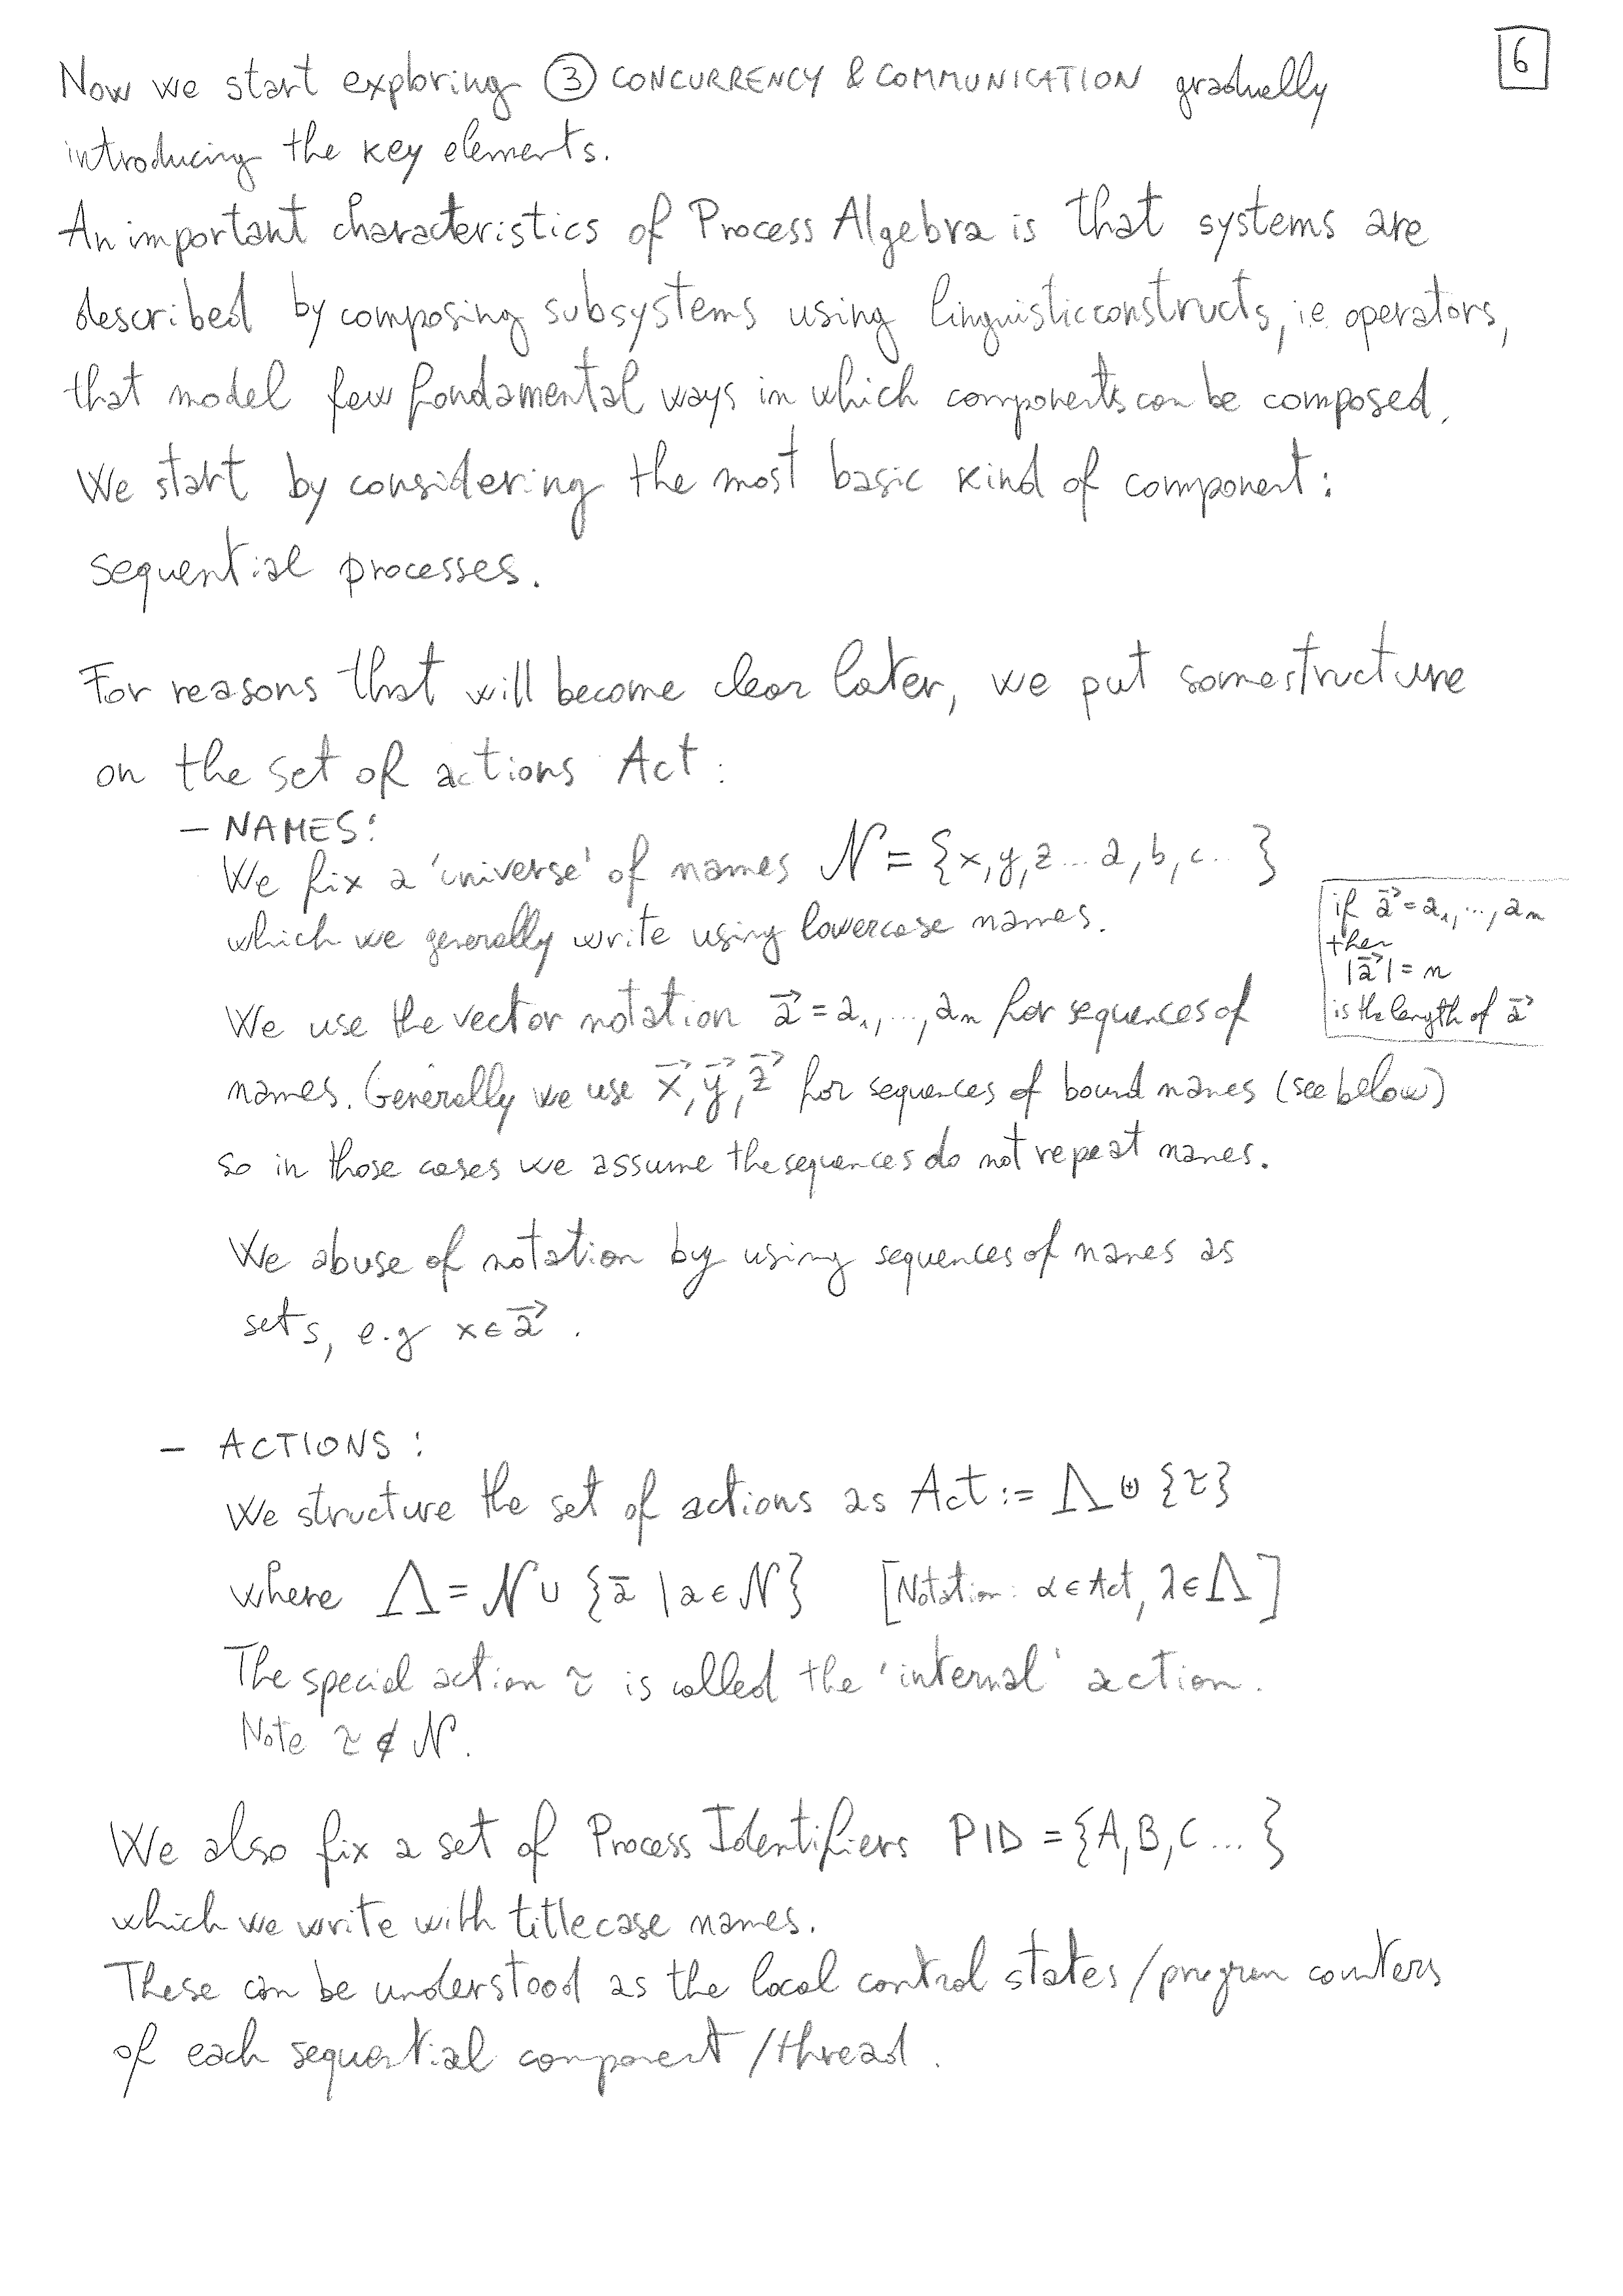 6
Now we start exploring ③ CONCURRENCY & COMMUNICATION gradually
introducing the key elements.
An important characteristics of Process Algebra is that systems are
described by composing subsystems using linguistic constructs, i.e. operators,
that model few fondamental ways in which components can be composed.
We start by considering the most basic kind of component:
sequential processes.
For reasons that will become clear later, we put some structure
on the set of actions Act:
- NAMES:
We fix a 'universe' of names 𝒩 = {x, y, z ... a, b, c ... }
which we generally write using lowercase names.
if a⃗ = a₁, ..., aₙ
then
|a⃗| = n
is the length of a⃗
We use the vector notation a⃗ = a₁, ..., aₙ for sequences of
names. Generally we use x⃗, y⃗, z⃗ for sequences of bound names (see below)
so in those cases we assume the sequences do not repeat names.
We abuse of notation by using sequences of names as
sets, e.g x ∈ a⃗ .
- ACTIONS:
We structure the set of actions as Act := Λ ⊎ {τ}
where Λ = 𝒩 ∪ {ā | a ∈ 𝒩} [Notation: α ∈ Act, λ ∈ Λ]
The special action τ is called the 'internal' action.
Note τ ∉ 𝒩.
We also fix a set of Process Identifiers PID = {A, B, C ... }
which we write with titlecase names.
These can be understood as the local control states / program counters
of each sequential component / thread.